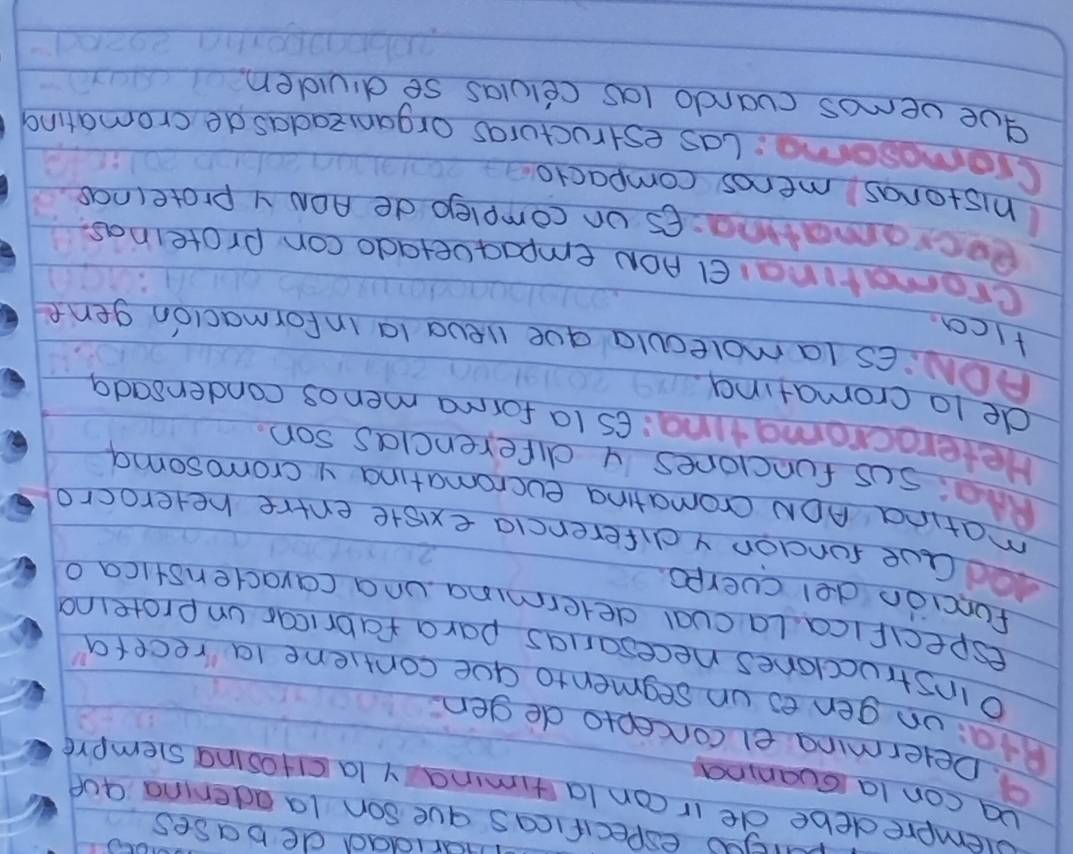 especificas que son la adenina que
siempre debe de ir con la timina y la citosina siempre
va con la Guanina
9. Determina el concepto de gen.
Rta: un gen es un segmento que contiene la "receta"
o instrucciones necesarias para fabricar un proteina
especifica. La cual determina una caracteristica o
función del cuerpo.
10d Que función y diferencia existe entre heterocro
matina ADN cromatina eucromatina y cromosoma
Rta: sus funciones y diferencias son.
Heterocromatina: Es la forma menos condensada
de la cromatina.
ADN: Es la molecula que lleva la información gene
tica.
Cromatina: El ADN Empaquetado con proteinas.
cromatina: Es un complejo de ADN y proteinas
histonas, menos compacto.
Cromosoma: Las estructuras organizadas de cromatina
que vemos cuando las células se dividen.